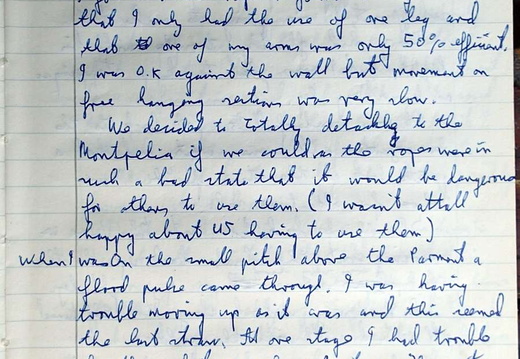 that I only had the use of one leg and
that one of my arms was only 50% efficient.
I was O.K against the wall but movement on
free hanging sections was very slow.
We decided to totally detackle to the
Montpelia if we could as the ropes were in
such a bad state that it would be dangerous
for others to use them. (I wasn't attall
happy about US having to use them)
When I was on the small pitch above the Parmont a
flood pulse came through. I was having
trouble moving up as it was and this seemed
the last straw. At one stage I had trouble